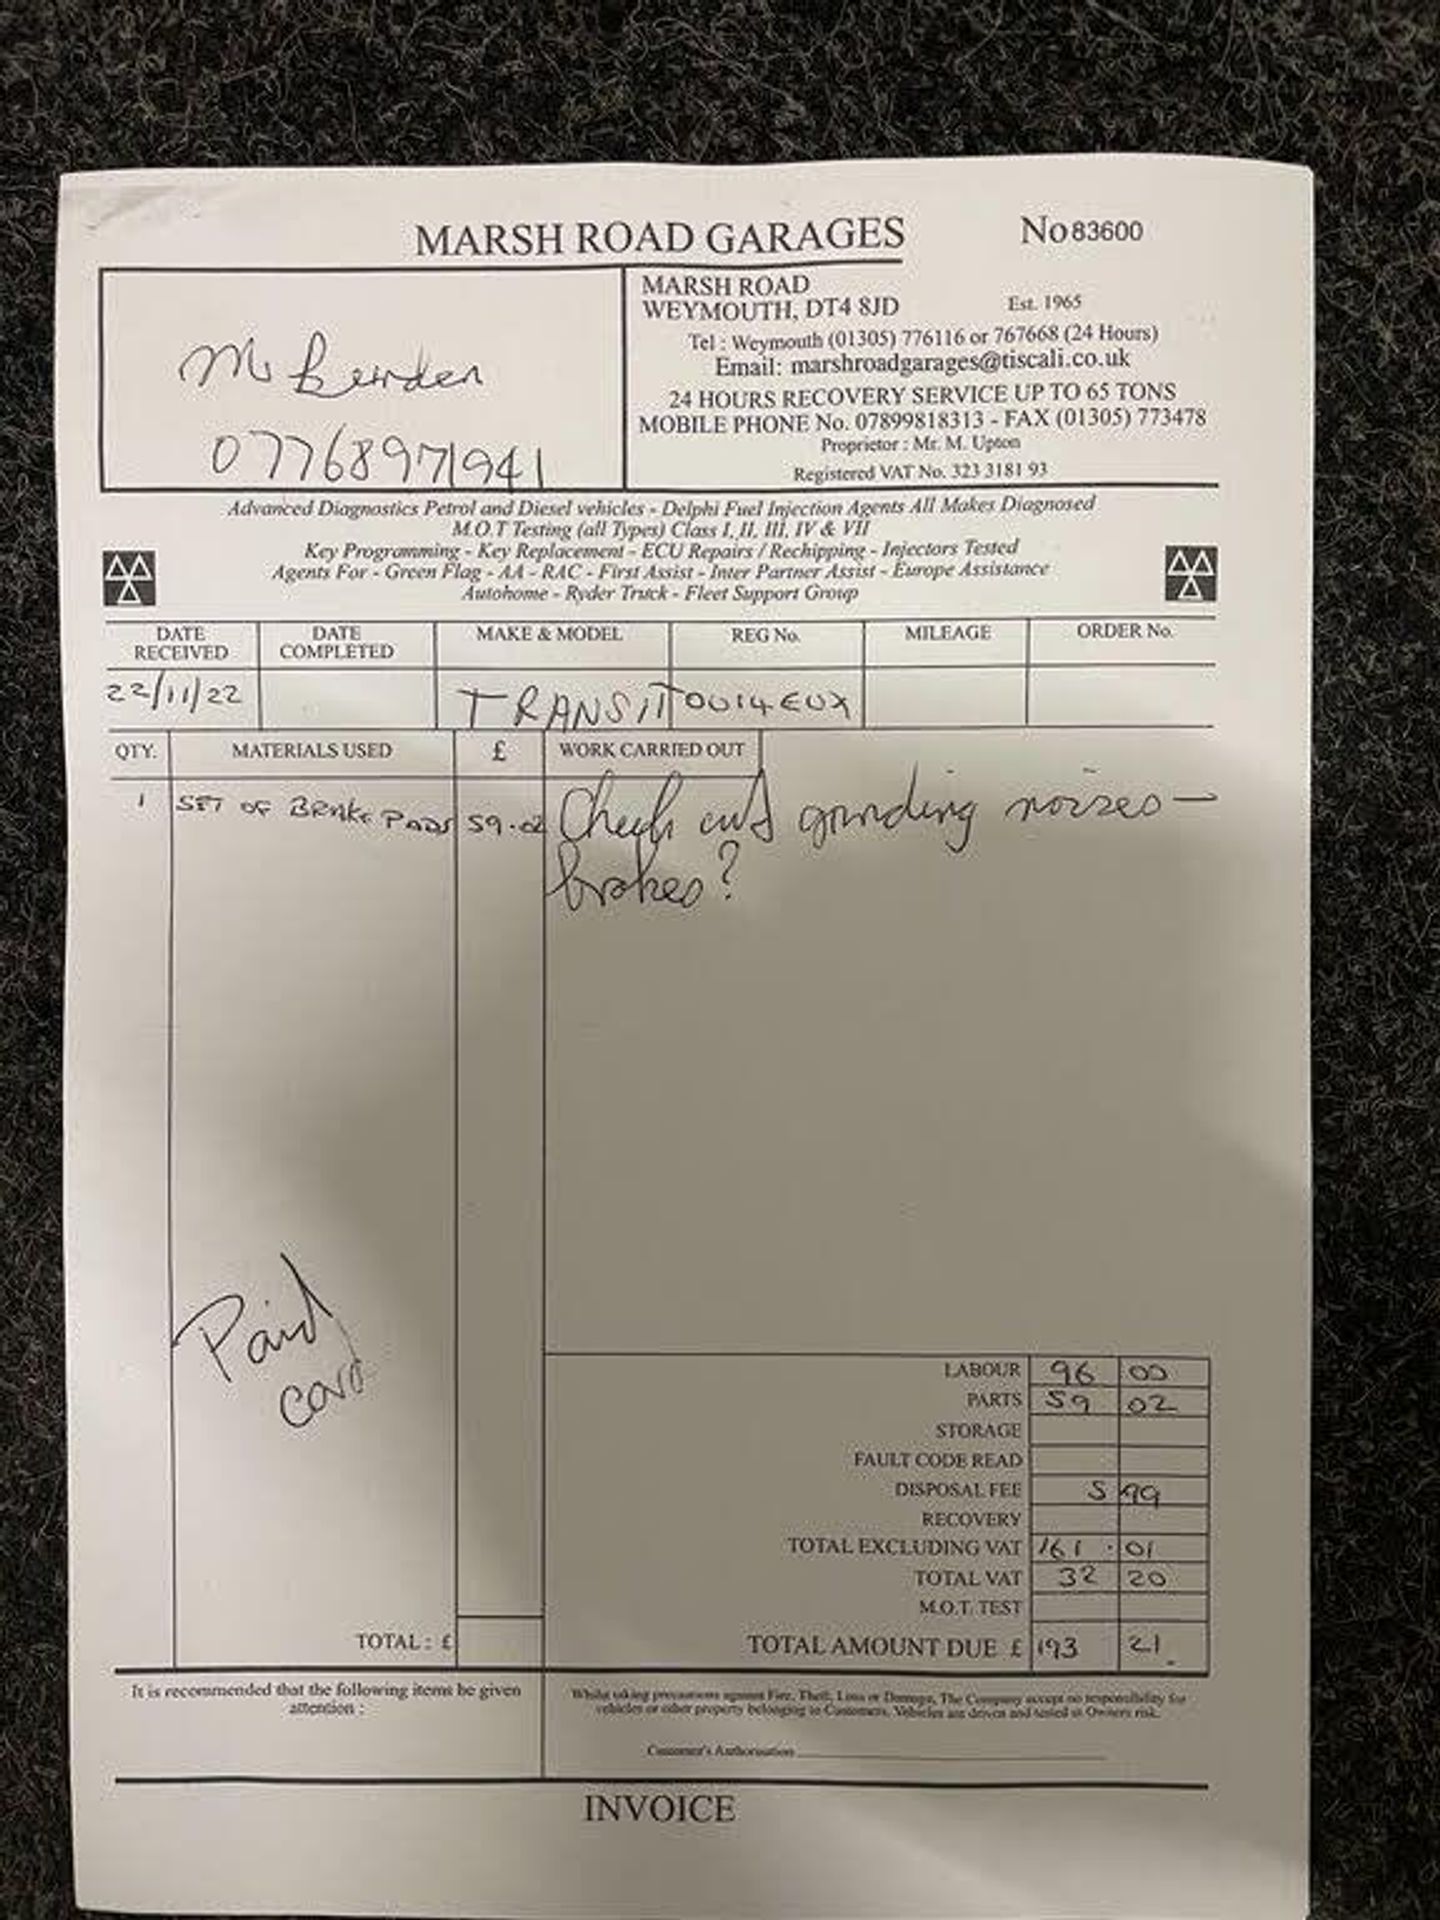 MARSH ROAD GARAGES
No 83600
Mr Burden
07768971941
MARSH ROAD
WEYMOUTH, DT4 8JD
Est. 1965
Tel : Weymouth (01305) 776116 or 767668 (24 Hours)
Email: marshroadgarages@tiscali.co.uk
24 HOURS RECOVERY SERVICE UP TO 65 TONS
MOBILE PHONE No. 07899818313 - FAX (01305) 773478
Proprietor : Mr. M. Upton
Registered VAT No. 323 3181 93
Advanced Diagnostics Petrol and Diesel vehicles - Delphi Fuel Injection Agents All Makes Diagnosed
M.O.T Testing (all Types) Class I, II, III, IV & VII
Key Programming - Key Replacement - ECU Repairs / Rechipping - Injectors Tested
Agents For - Green Flag - AA - RAC - First Assist - Inter Partner Assist - Europe Assistance
Autohome - Ryder Truck - Fleet Support Group
DATE RECEIVED DATE COMPLETED MAKE & MODEL REG No. MILEAGE ORDER No.
22/11/22 TRANSIT OU14EUX
QTY. MATERIALS USED £ WORK CARRIED OUT
1 SET OF BRAKE PADS 59.02 Check out grinding noises —
brakes?
Paid
card
LABOUR 96 00
PARTS 59 02
STORAGE
FAULT CODE READ
DISPOSAL FEE 5 99
RECOVERY
TOTAL EXCLUDING VAT 161 . 01
TOTAL VAT 32 20
M.O.T. TEST
TOTAL : £
TOTAL AMOUNT DUE £ 193 21
It is recommended that the following items be given
attention :
Whilst taking precautions against Fire, Theft, Loss or Damage, The Company accept no responsibility for
vehicles or other property belonging to Customers. Vehicles are driven and tested at Owners risk.
Customer's Authorisation
INVOICE